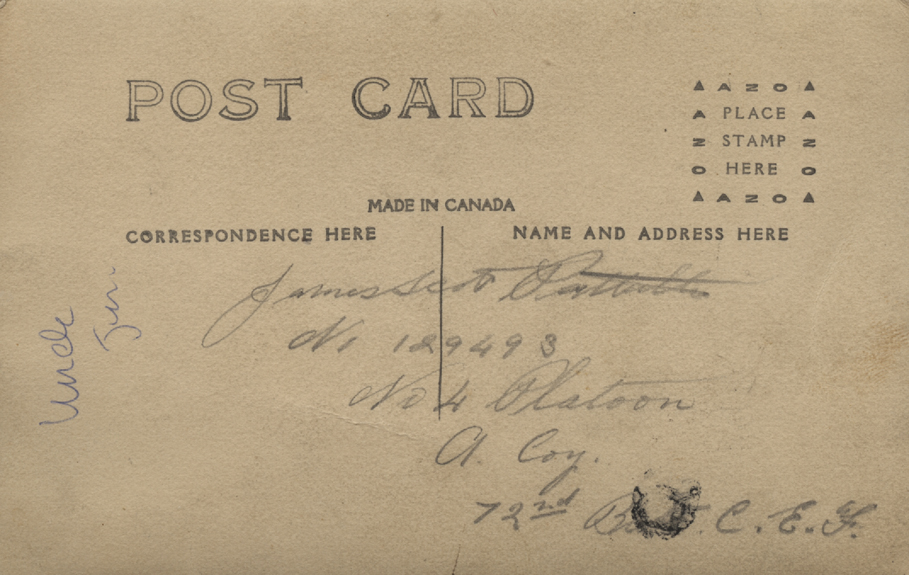 POST CARD
▲ A Z O ▲
A PLACE A
N STAMP N
O HERE O
▲ A Z O ▲
MADE IN CANADA
CORRESPONDENCE HERE
NAME AND ADDRESS HERE
James Scott
No 129493
No 4 Platoon
A. Coy.
72nd C. E. F.
Uncle
Jim.